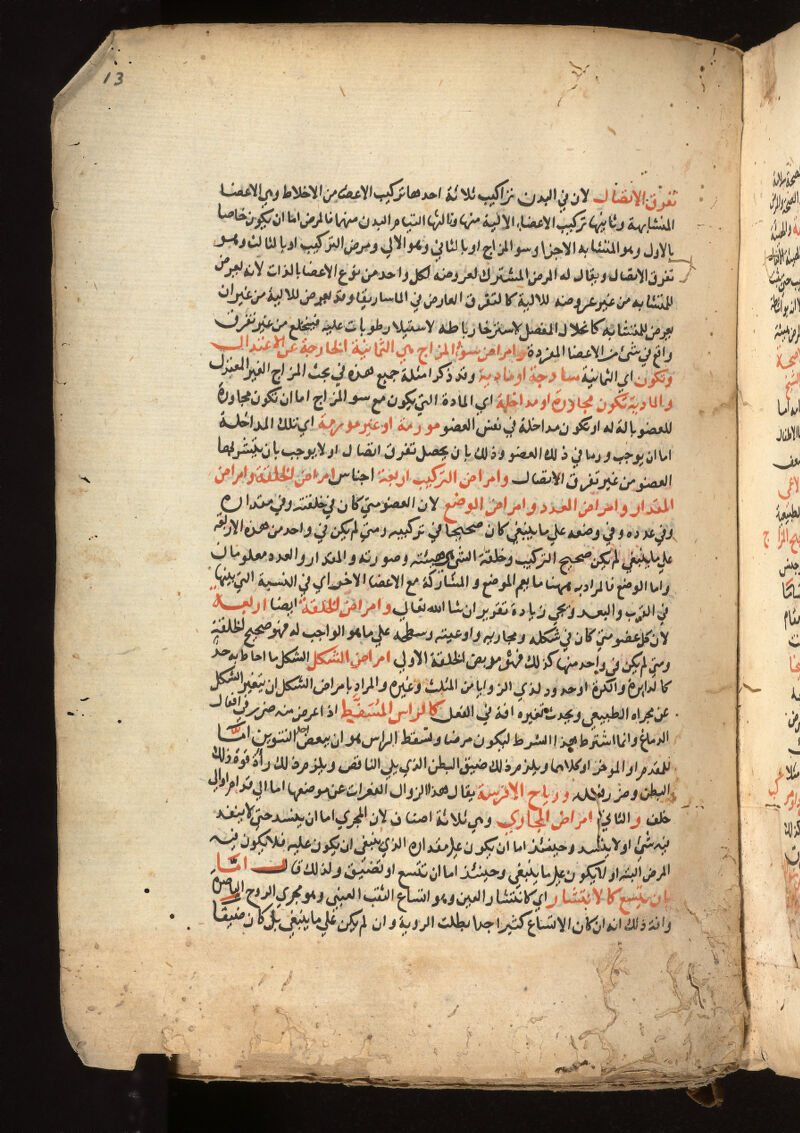 13
تفرق الاتصال لان في البدن تراكيب ثلاثة احدها تركيب الاعضا من الاخلاط وهي الاعضا
المتشابهة وثانيها تركيب الاعضا الالية منها وثالثها التيام البدن منهما فالمرض اما ان يكون خاصا
بالاول وهو المتشابه الاجزا وسو المزاج او بالثاني وهو الالي ومرض التركيب او بالثالث وهو
تفرق الاتصال ويقال له المرض المشترك لعروضه لكل واحد من نوع الاعضا بالذات لانه يعرض
للمتشابه من غير عروضه للالية كالتفرق العارض في الماساريقا وقد يعرض للالية من غير ان
يعرض للمتشابه كانخلال المفصل لاسترخا رباطه لاستيلا رطوبات عليه فينخلع من غير تفرق
واقع في شي من الاعضا المفردة وامراض سوء المزاج هي الثمانية الخارجة عن الاعتدال
وتكون اي الثمانية ساذجة او مادية وقد ذكر امثلة جميع هذه في بحث المزاج الغير المعتدل
والمادية تكون مجاورة او مداخلة اي المادة التي يكون مع سو المزاج اما ان تكون مجاورة
للعضو بالة له او تكون مداخلة في نفس العضو مورمة او غير مورمة اي تلك المداخلة
اما ان يوجب ورما في ذلك العضو وذلك بان يحصل تفرق اتصال او لا يوجب بان يتشربها
العضو من غير تفرق الاتصال وامراض التركيب اربعة اجناس امراض الخلقة وامراض
المقدار وامراض العدد وامراض الوضع لان العضو متى كان في خلقته وفي مقداره
وفي عدده وفي وضعه على ما ينبغي كان صحيحا في تركيبه ومتى لم يكن في واحد من هذه الاربعة
على ما ينبغي لم يكن صحيح التركيب وخلقة الشي هيئته وصورته والمقدار والعدد معلومان
واما الوضع فالمراد به ههنا ما يعم الموضع والمشاركة مع الاعضا الاخر اي في النسبة التي بينها
في القرب والبعد ويجي زيادة تقرير ان شا الله تعالى وامراض الخلقة ايضا اربعة
لان كل عضو متى كان في شكله ومجاريه واوعيته وسطحه على ما هو الواجب له فهو صحيح الخلقة
ومتى لم يكن في واحد منها كذلك فهو مريض الخلقة الاول امراض الشكل الشكل ما احاط به حد
كالدايرة والكرة او حدود لذي الزوايا من المثلث وغيره والمراد بامراض الشكل ان يتغير الشكل
عن مجراه الطبيعي ويحدث تغيره افة في الفعل كالراس المسفط اذا عرض منه ضرر في افعال
الدماغ وانما اشترط هذا الشرط ليكون مرضا وتسفط الراس هو ان ينقص احد النتوين اما
المقدم او الموخر او كلاهما ويلزم ذلك ضيق البطن الذي يلي الناقص ويلزم ذلك رداة قوة ذلك
البطن وضرر فعله ورياح الافرسة يقال هذا لزوال الفقرات عن موضعها اما الى قدام او الى
خلف والثاني امراض المجاري وهي ثلاثة اصناف لان المجرى اما ان ينسد حتى لا ينفذ
فيه شي او لا ينسد وحينئذ اما ان يكون على مقداره الذي ينبغي ان يكون عليه فلا يكون فيه
المرض البتة او لا يكون على ما ينبغي وحينئذ اما ان تتسع او تضيق ولذلك قال اما
بان يتسع كالانتشار اي كانتشار العين وهو اتساع الثقب العنبي وهو مجرى الروح الباصرة
وافة ذلك انه ان كان الاتساع كثيرا جدا بطلت الروية وان لم يكن على ما ينبغي بل كان ضيقا